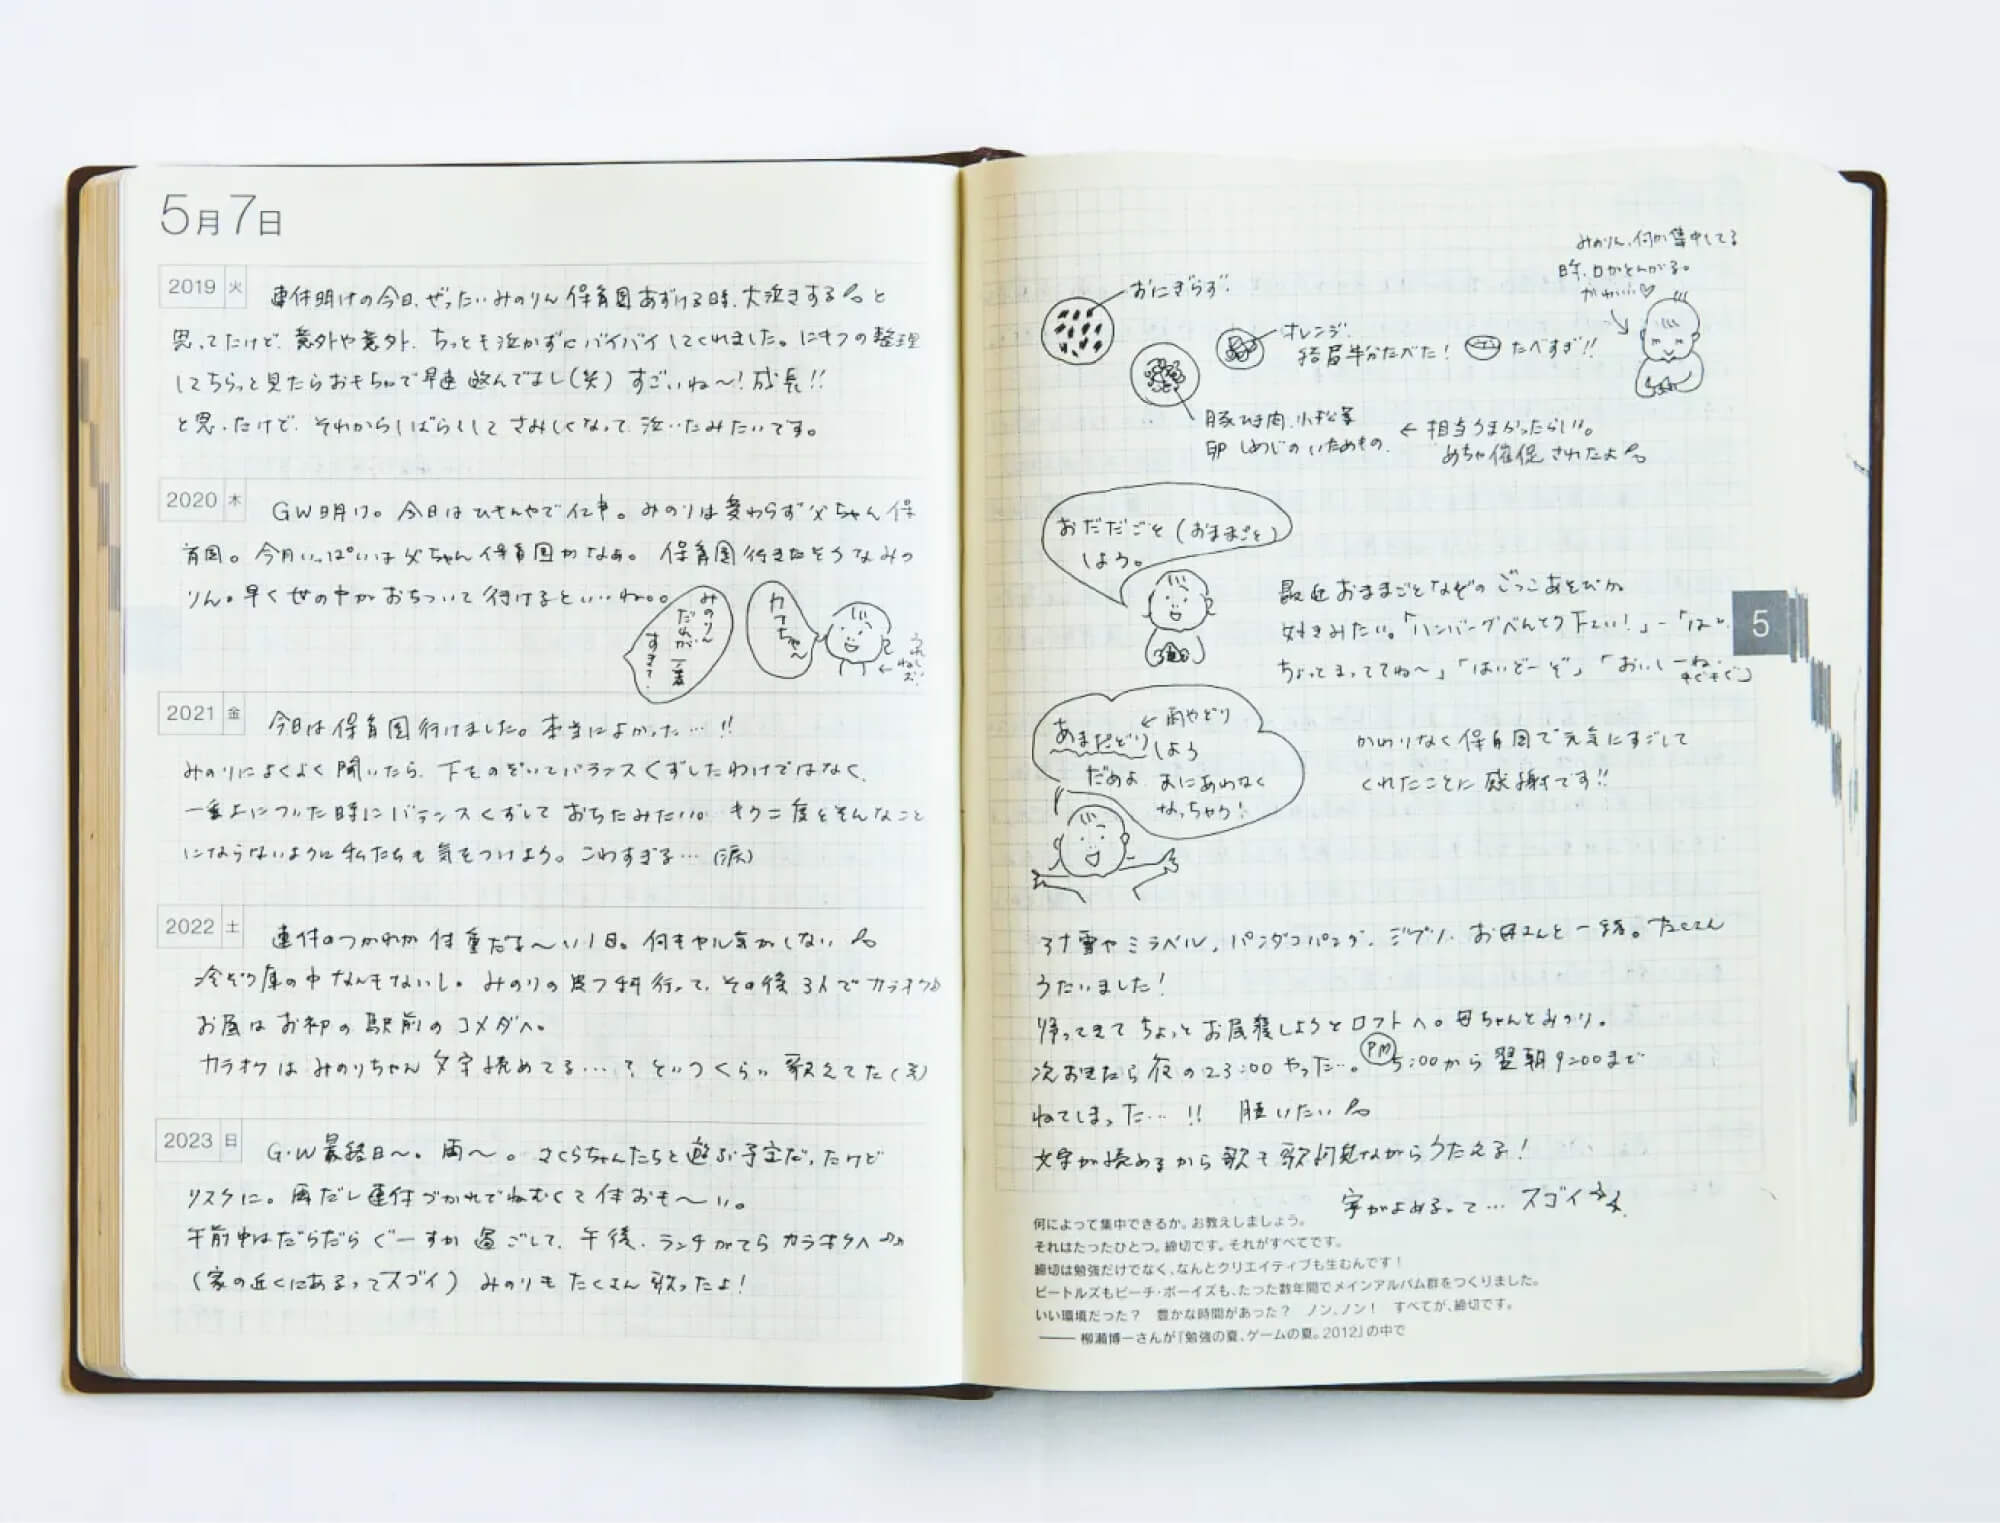 5月7日
2019 火
連休明けの今日、ぜったいみのりん保育園あずける時、大泣きすると
思ってたけど、意外や意外、ちっとも泣かずにバイバイしてくれました。にもつの整理
してちらっと見たらおもちゃで早速遊んでるし(笑) すごいね〜!成長!!
と思ったけど、それからしばらくしてさみしくなって泣いたみたいです。
2020 木
GW明け。今日はひさんやで仕事。みのりは変わらず父ちゃん保
育園。今月いっぱいは父ちゃん保育園かなぁ。保育園行きたそうなみの
りん。早く世の中がおちついて行けるといいね。
みのりん
だれが一番
すきで?
カアちゃ〜
うれしいねぇ
2021 金
今日は保育園行けました。本当によかった…!!
みのりによくよく聞いたら、下をのぞいてバランスくずしたわけではなく、
一番上についた時にバランスくずしておちたみたい。もう二度とそんなこと
にならないように私たちも気をつけよう。こわすぎる…(涙)
2022 土
連休のつかれか体重だる〜い1日。何もヤル気がしない
冷ぞう庫の中なんもないし。みのりの皮フ科行って、その後3人でカラオケ♪
お昼はお初の駅前のコメダへ。
カラオケはみのりちゃん文字読めてる…?というくらい歌えてた(笑)
2023 日
G・W最終日〜。雨〜。さくらちゃんたちと遊ぶ予定だったけど
リスケに。雨だし連休づかれでねむくて体おも〜い。
午前中はだらだらぐーすか過ごして、午後、ランチがてらカラオケへ♪♪
(家の近くにあるってスゴイ) みのりもたくさん歌ったよ!
みのりん、何か集中してる
時、口がとんがる。
かわいい♡
おにぎらず。
オレンジ。
結局半分たべた! たべすぎ!!
豚ひき肉、小松菜
卵 しめじのいためもの。
← 相当うまかったらしい。
めちゃ催促されたよ
おだだごと(おままごと)
しよう。
最近おままごとなぞのごっこあそびが
好きみたい。「ハンバーグべんとう下さい!」-「はい。
ちょってまっててね〜」「はいどーぞ」「おいしーね。もぐもぐ」
5
あまだどり ← 雨やどり
しよう
だめよ まにあわなく
なっちゃう!
かわりなく保育園で元気にすごして
くれたことに感謝です!!
アナ雪やミラベル、パンダコパンダ、ジブリ、お母さんと一緒。たくさん
うたいました!
帰ってきてちょっとお昼寝しようとロフトへ。母ちゃんとみのり。
次おきたら夜の23:00やった…。PM5:00から翌朝9:00まで
ねてしまった…!! 腰いたい
文字が読めるから歌も歌詞見ながらうたえる!
字がよめるって…スゴイ
何によって集中できるか。お教えしましょう。
それはたったひとつ。締切です。それがすべてです。
締切は勉強だけでなく、なんとクリエイティブも生むんです!
ビートルズもビーチ・ボーイズも、たった数年間でメインアルバム群をつくりました。
いい環境だった? 豊かな時間があった? ノン、ノン! すべてが、締切です。
―― 柳瀬博一さんが『勉強の夏、ゲームの夏。2012』の中で